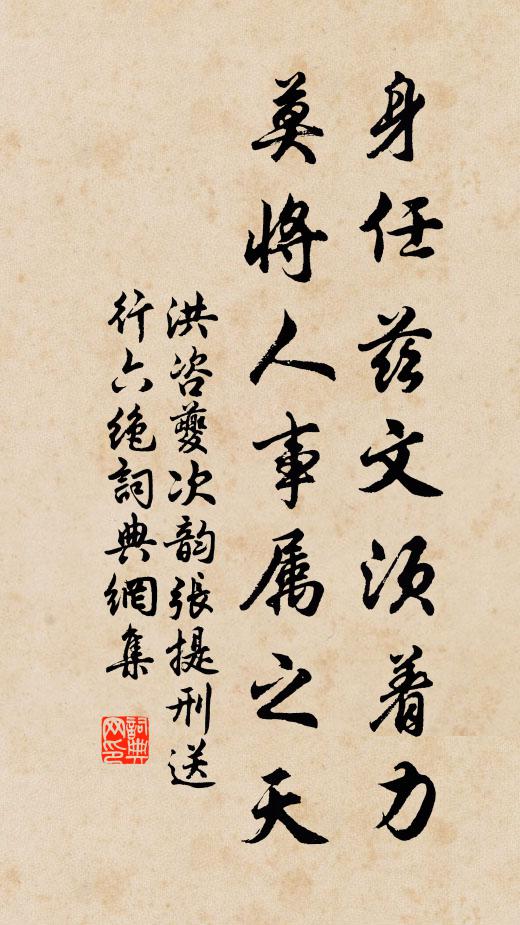 身任茲文須着力
莫將人事属之天
洪咨夔次韵張提刑送
行六绝詞典網集
詞典
网印